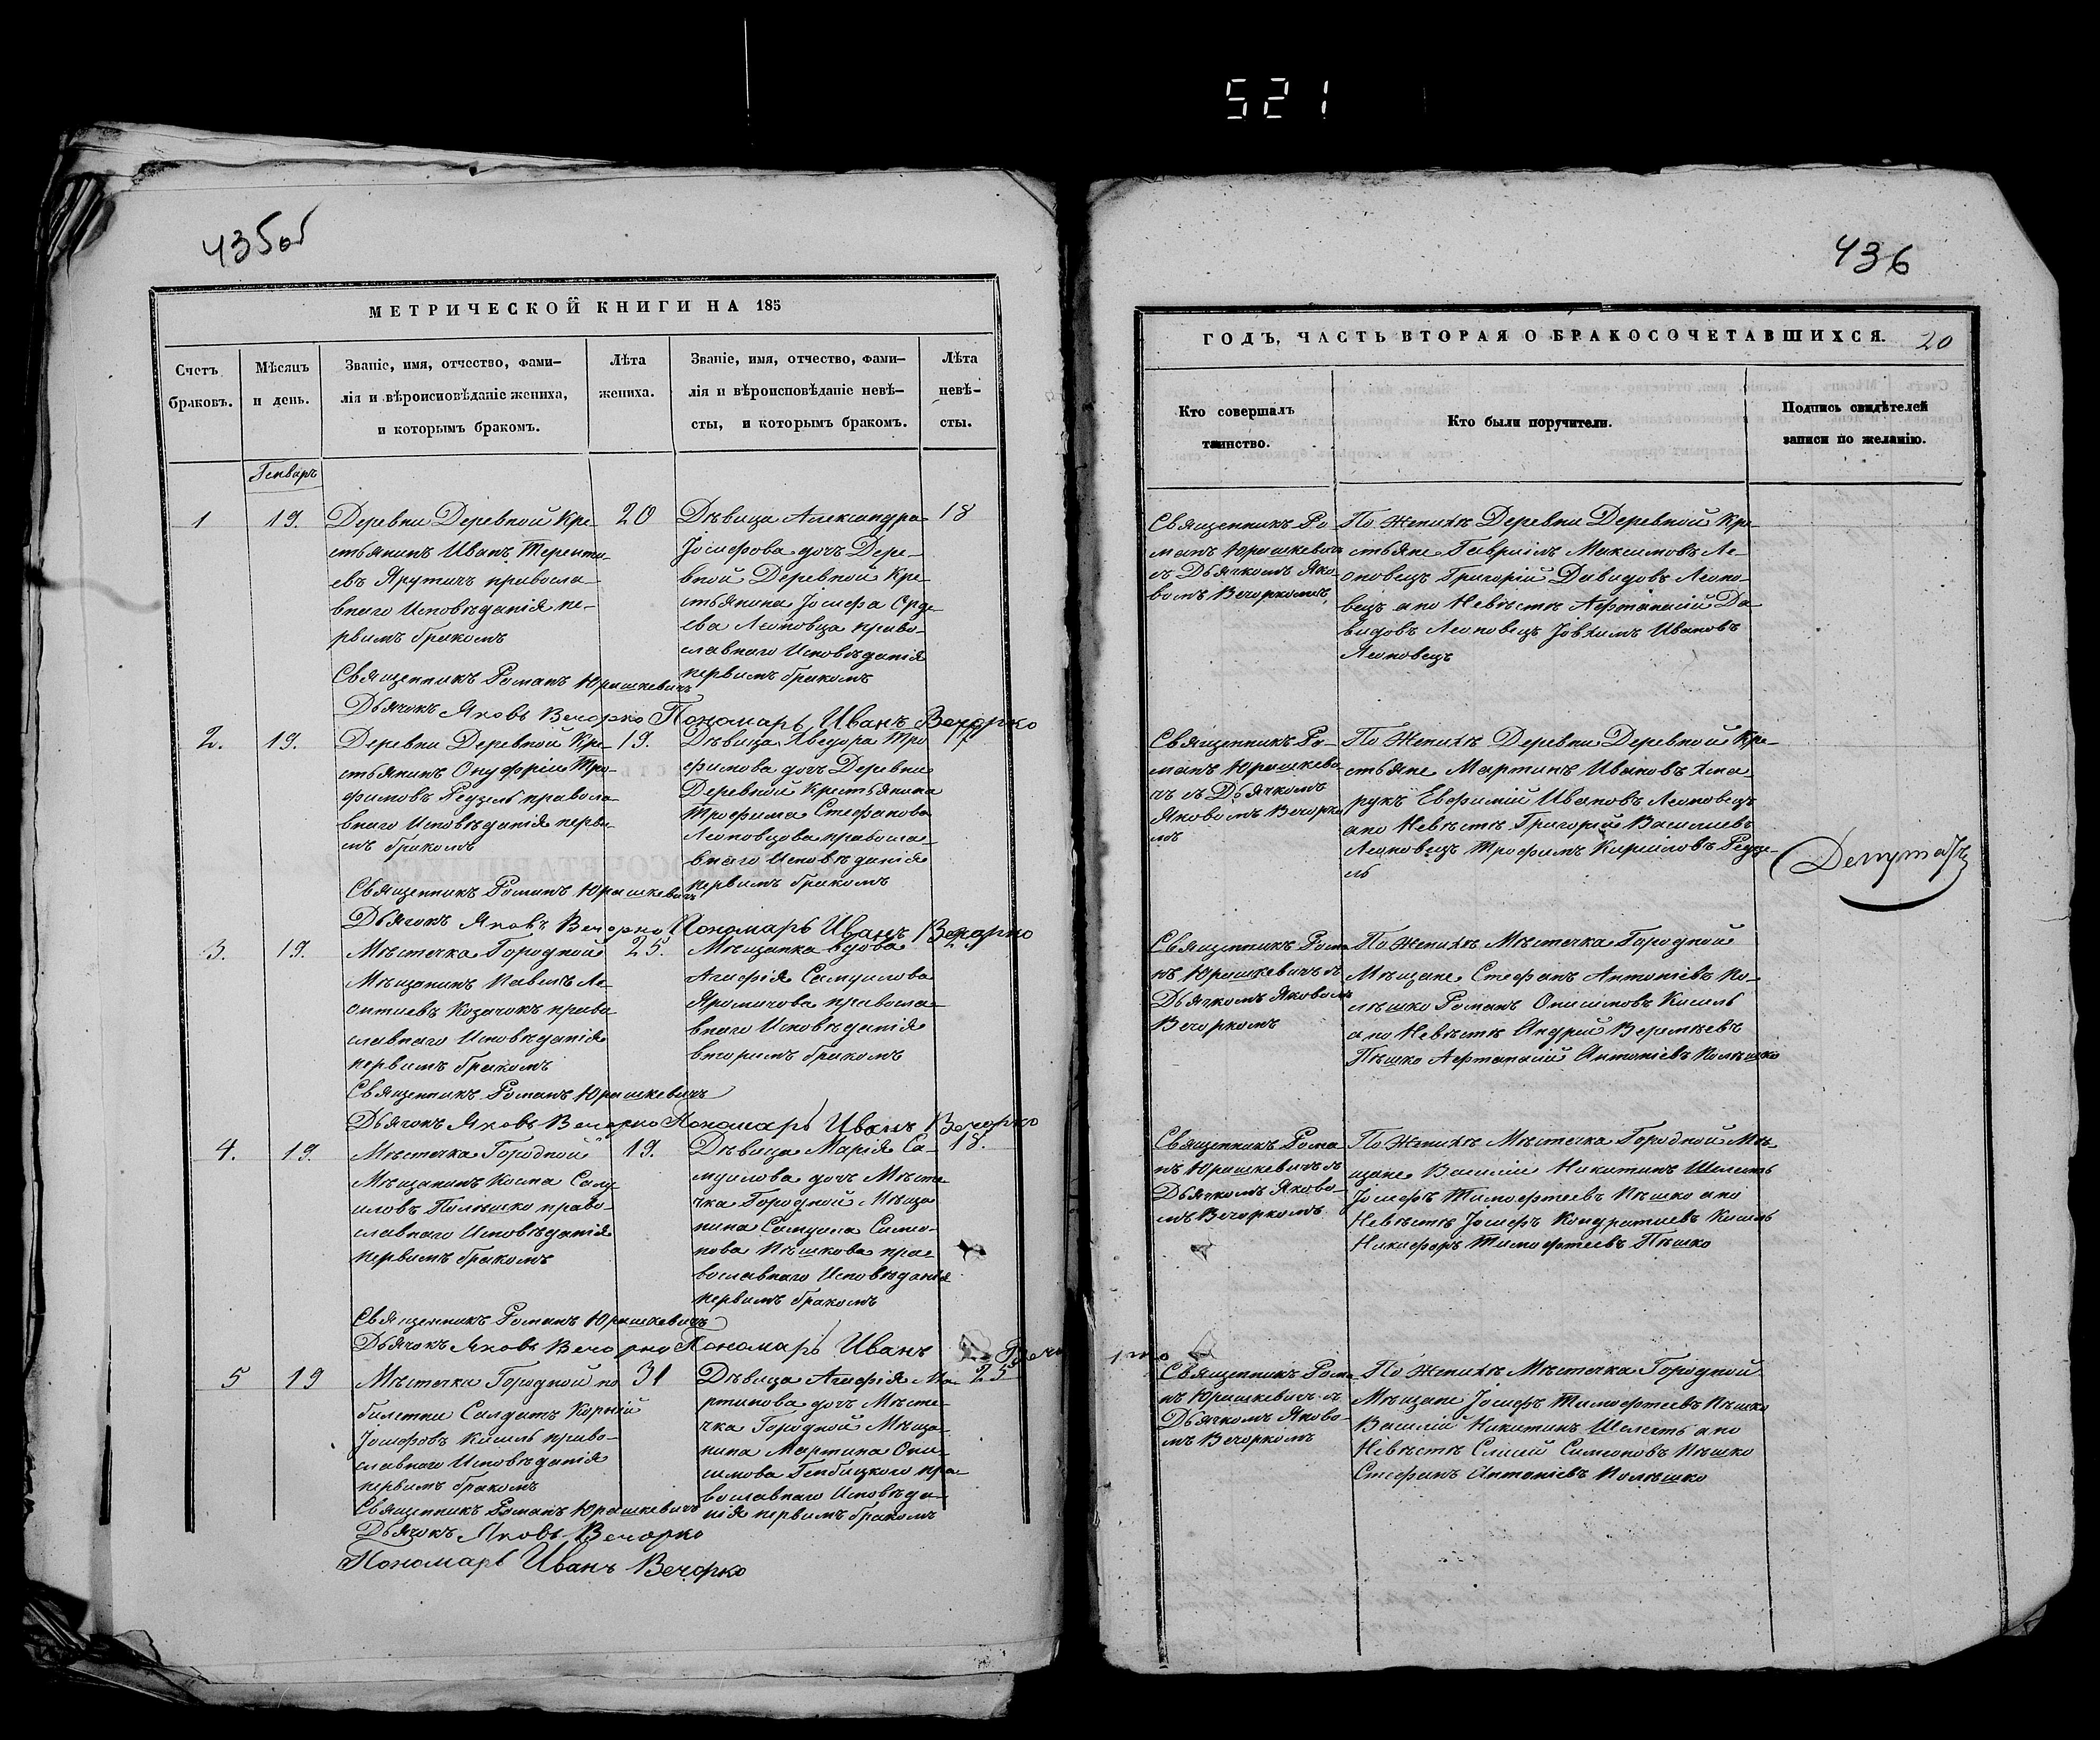 521
435об
МЕТРИЧЕСКОЙ КНИГИ НА 185
Счетъ браковъ.
Мѣсяцъ и день.
Званіе, имя, отчество, фами-
лія и вѣроисповѣданіе жениха,
и которымъ бракомъ.
Лѣта жениха.
Званіе, имя, отчество, фами-
лія и вѣроисповѣданіе невѣ-
сты, и которымъ бракомъ.
Лѣта невѣ-
сты.
Генварь
1
19.
Деревни Деревной Кре-
стьянинъ Иванъ Теренти-
евъ Ярутичъ правосла-
внаго Исповѣданія пе-
рвимъ бракомъ
20
Дѣвица Александра
Іосифова дочь Дере-
вной Деревной Кре-
стьянина Іосифа
Леоновца право-
славнаго Исповѣданія
первимъ бракомъ
18
Священникъ Романъ Юрашкевичъ
Дьячокъ Яковъ Вечорко Пономарь Иванъ Вечорко
2.
19.
Деревни Деревной Кре-
стьянинъ Онуфрій Тро-
фимовъ Редзель правосла-
внаго Исповѣданія перви-
мъ бракомъ
19.
Дѣвица Хведора Тро
фимова дочь Деревни
Деревной Крестьянина
Трофима Стефанова
Леоновцова правосла-
внаго Исповѣданія
первимъ бракомъ
17.
Священникъ Романъ Юрашкевичъ
Дьячокъ Яковъ Вечорко Пономарь Иванъ Вечорко
3.
19.
Мѣстечка Городной
Мѣщанинъ Павелъ Ле-
онтиевъ Козачокъ право
славнаго Исповѣданія
первимъ бракомъ
25.
Мѣщанка вдова
Агафія Самуилова
правосла-
внаго Исповѣданія
вторимъ бракомъ
Священникъ Романъ Юрашкевичъ
Дьячокъ Яковъ Вечорко Пономарь Иванъ Вечорко
4.
19.
Мѣстечка Городной
Мѣщанинъ Косма Саму
иловъ Полѣшко право-
славнаго Исповѣданія
первимъ бракомъ
19.
Дѣвица Марія Са-
муилова дочь Мѣсте
чка Городной Мѣща
нина Самуила Симо-
нова Пѣшкова пра-
вославнаго Исповѣданія
первимъ бракомъ
18.
Священникъ Романъ Юрашкевичъ
Дьячокъ Яковъ Вечорко Пономарь Иванъ
5
19
Мѣстечка Городной по
билетни Салдатъ Корній
Іосифовъ Кисель право-
славнаго Исповѣданія
первимъ бракомъ
31
Дѣвица Агафія Ма-
ртинова дочь Мѣсте-
чка Городной Мѣща-
нина Мартина Они-
симова Генбицкого пра-
вославнаго Исповѣда-
нія первимъ бракомъ
25
Священникъ Романъ Юрашкевичъ
Дьячокъ Яковъ Вечорко
Пономарь Иванъ Вечорко
436
ГОДЪ, ЧАСТЬ ВТОРАЯ О БРАКОСОЧЕТАВШИХСЯ.
20
Кто совершалъ
таинство.
Кто были поручители.
Подпись свидѣтелей
записи по желанію.
Священникъ Ро-
манъ Юрашкевичъ
съ Дьячкомъ Яко-
вомъ Вечоркомъ
По Женихѣ Деревни Деревной Кре-
стьяне Гавріилъ Максимовъ Ле-
оновецъ Григорій Давидовъ Леоно-
вецъ а по Невѣстѣ Афтанасій Да-
видовъ Леоновецъ Іовхимъ Ивановъ
Леоновецъ
Священникъ Ро-
манъ Юрашкеви-
чъ съ Дьячкомъ
Яковомъ Вечорко
мъ
По Женихѣ Деревни Деревной Кре-
стьяне Мартинъ Ивановъ Хма-
рукъ Евфимій Ивановъ Леоновецъ
а по Невѣстѣ Григорій Василиевъ
Леоновецъ Трофимъ Кириловъ Редзе-
ль
Депутатъ
Священникъ Рома
нъ Юрашкевичъ съ
Дьячкомъ Яковомъ
Вечоркомъ
По Женихѣ Мѣстечка Городной
Мѣщане Стефанъ Антоніевъ По-
лѣшко Романъ Онисимовъ Кисель
а по Невѣстѣ Андрей Веремѣевъ
Пѣшко Афтанасій Антоніевъ Полѣшко
Священникъ Рома
нъ Юрашкевичъ съ
Дьячкомъ Яково-
мъ Вечоркомъ
По Женихѣ Мѣстечка Городной Мѣ-
щане Василій Никитинъ Шелестъ
Іосифъ Тимофтеевъ Пѣшко а по
Невѣстѣ Іосифъ Кондратиевъ Кисель
Никифоръ Тимофтеевъ Пѣшко
Священникъ Рома
нъ Юрашкевичъ съ
Дьячкомъ Яково-
мъ Вечоркомъ
По Женихѣ Мѣстечка Городной
Мѣщане Іосифъ Тимофтеевъ Пѣшко
Василій Никитинъ Шелестъ а по
Невѣстѣ Елисей Симоновъ Пѣшко
Стефанъ Антоніевъ Полѣшко